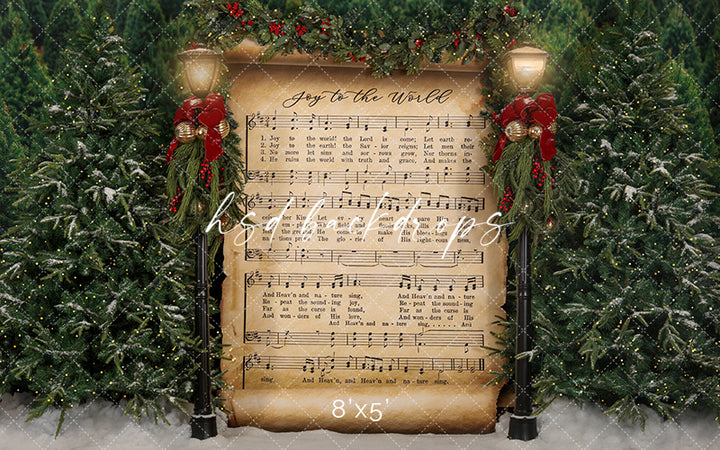 Joy to the World
1. Joy to the world! the Lord is come; Let earth re-
2. Joy to the earth! the Sav - ior reigns; Let men their
3. No more let sins and sor - rows grow, Nor thorns in-
4. He rules the world with truth and grace, And makes the
hsd backdrops
ceive her King; Let ev - 'ry heart pre - pare Him
the ground; He comes to make His bless-ings
na - tions prove The glo - ries of His right-eous-ness,
And Heav'n and na - ture sing, And Heav'n and na - ture
Re - peat the sound-ing joy, Re - peat the sound-ing
Far as the curse is found, Far as the curse is
And won - ders of His love, And won - ders of His
And Heav'n and na - ture sing, ...... And
sing, And Heav'n, and Heav'n and na - ture sing.
8'x5'